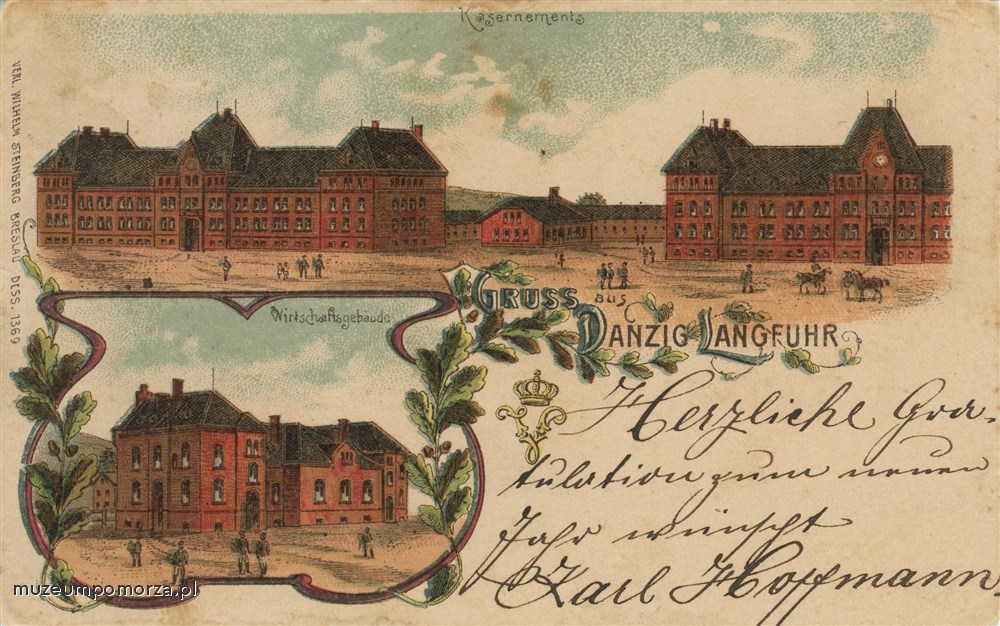 Kasernements
VERL. WILHELM STEINBERG BRESLAU DESS. 1369
GRUSS aus
DANZIG LANGFUHR
Wirtschaftsgebäude
Herzliche Gra-
tulation zum neuen
Jahr wünscht
Karl Hoffmann.
muzeumpomorza.pl